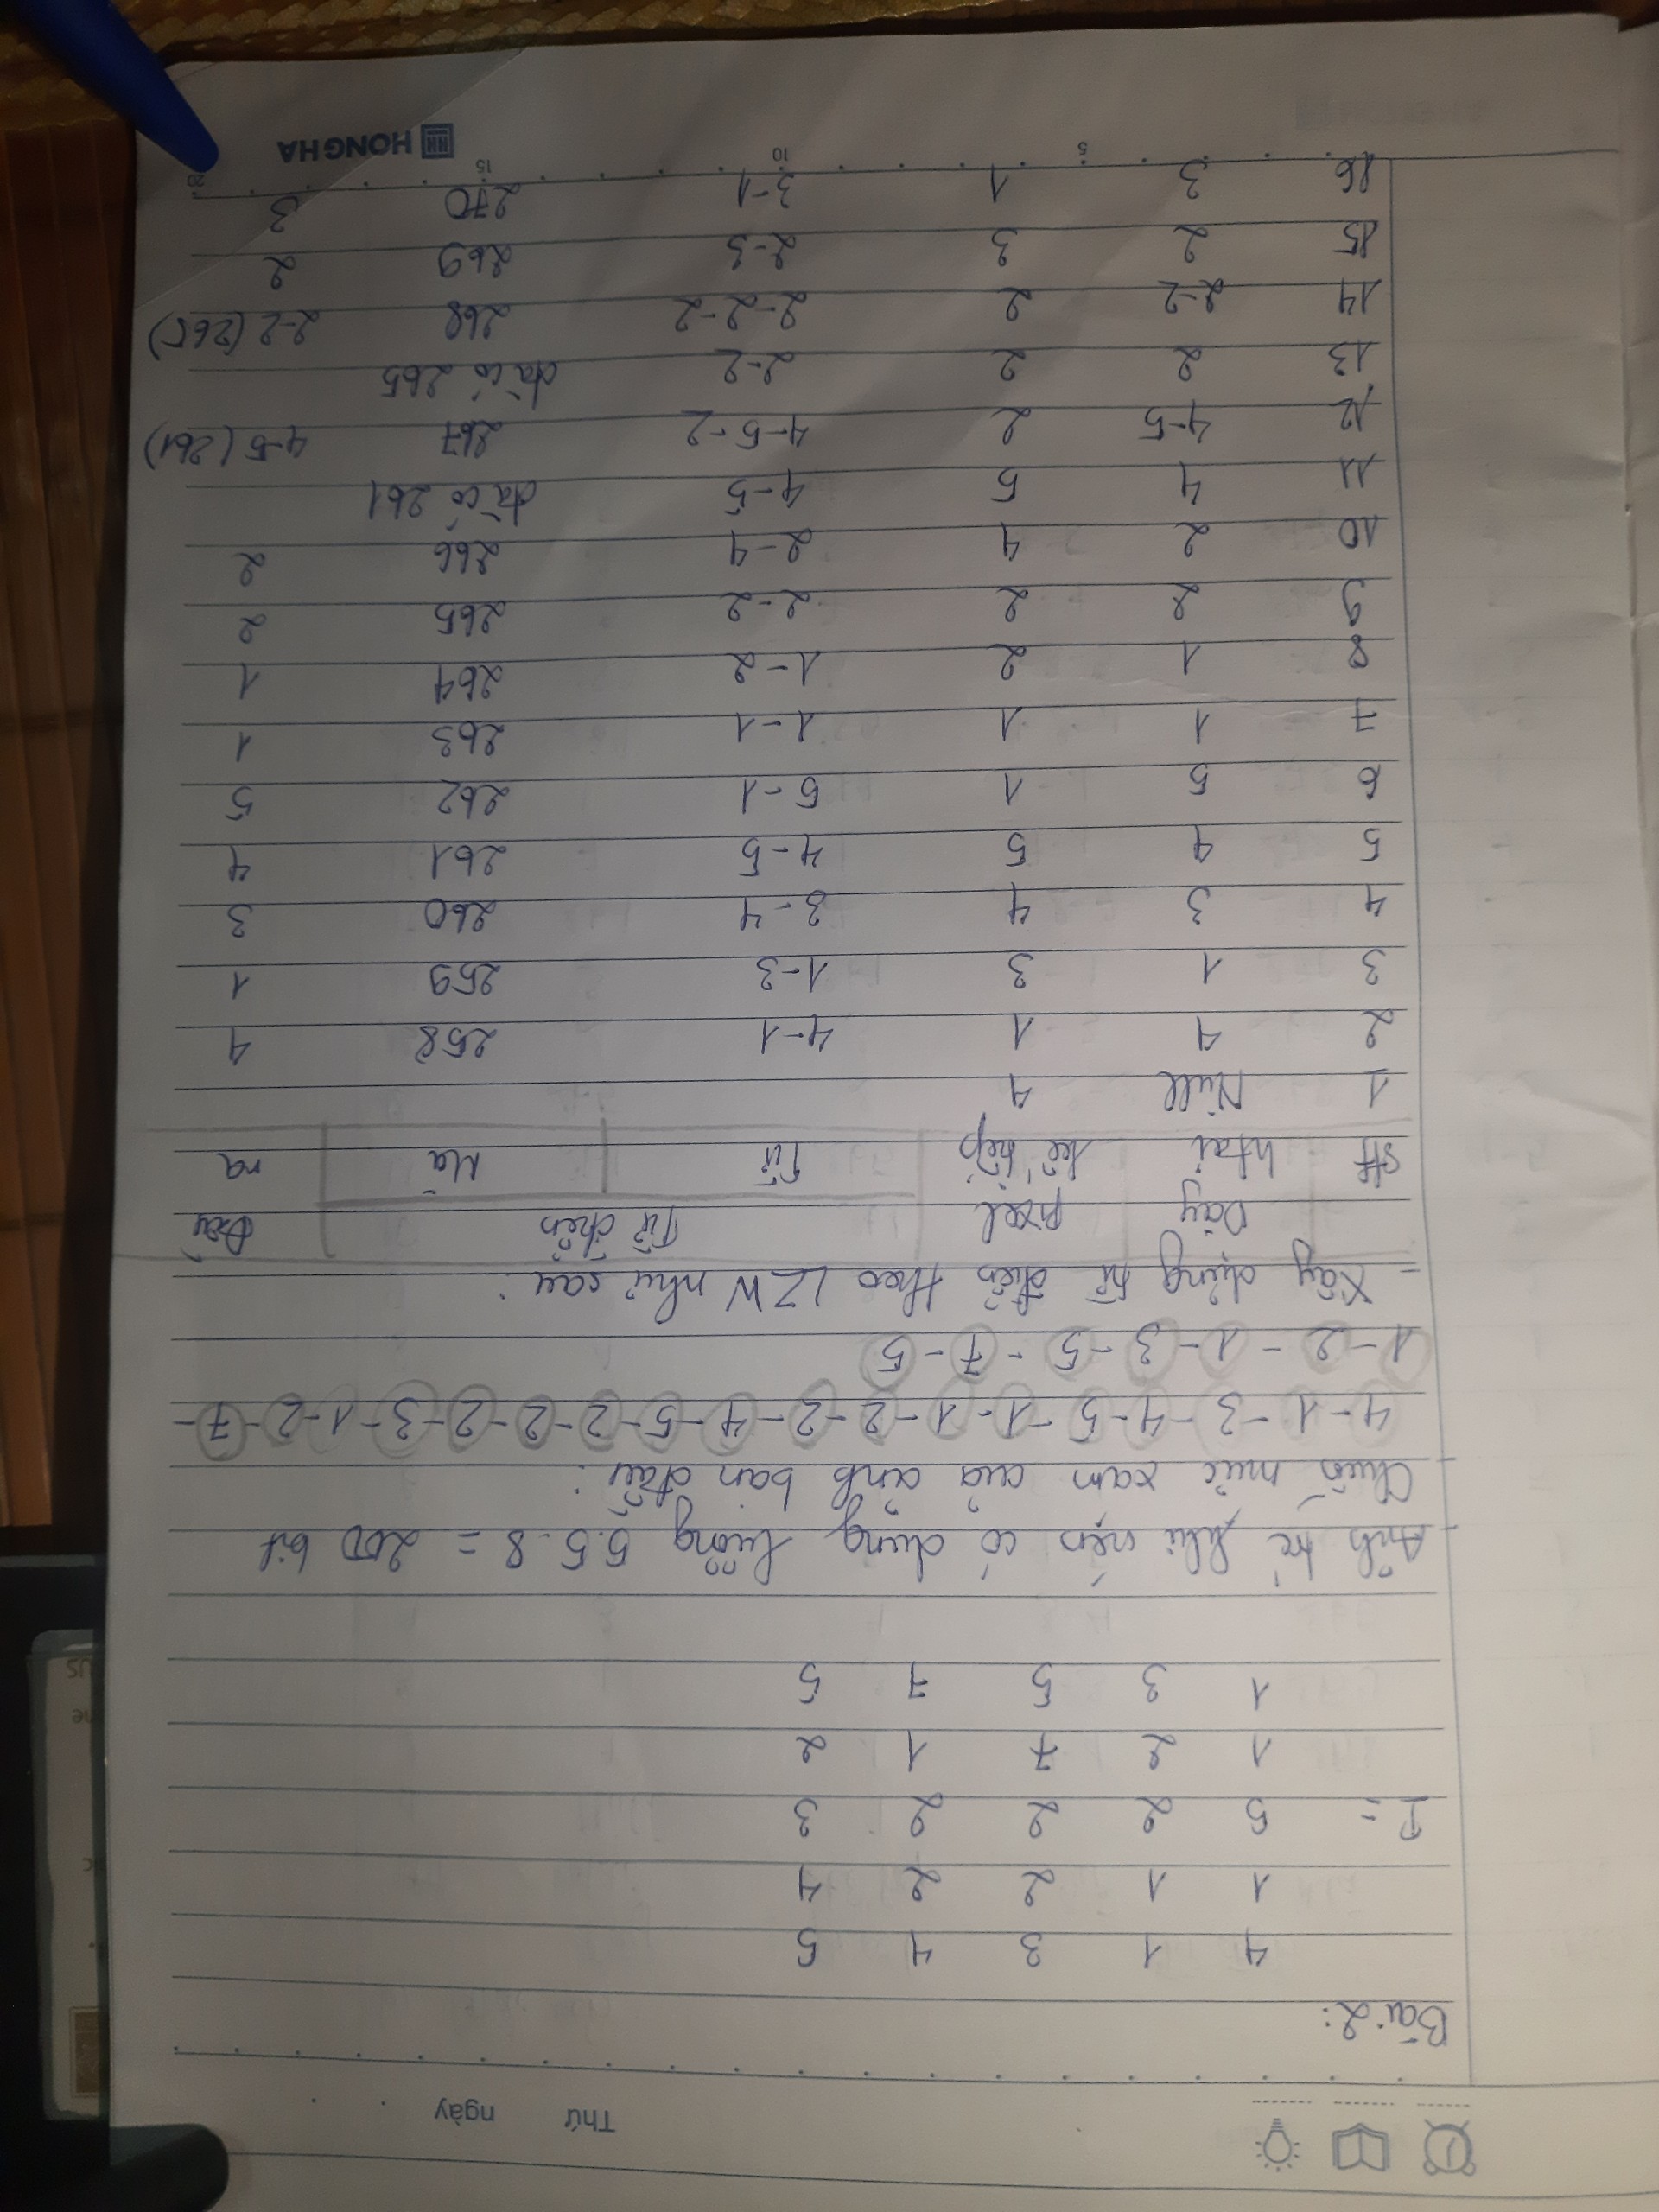 Thứ ngày
Bài 2:
4 1 3 4 5
1 1 2 2 4
I = 5 2 2 2 3
1 2 7 1 2
1 3 5 7 5
- Ảnh trc khi nén có dung lượng 5.5.8 = 200 bit
- Chuỗi mức xám của ảnh ban đầu:
4-1-3-4-5-1-1-2-2-4-5-2-2-2-3-1-2-7-
1-2-1-3-5-7-5
- Xây dựng từ điển theo LZW như sau:
Dãy pixel Từ điển Đầu
stt htại kế tiếp Từ Mã ra
1 Null 4
2 4 1 4-1 258 4
3 1 3 1-3 259 1
4 3 4 3-4 260 3
5 4 5 4-5 261 4
6 5 1 5-1 262 5
7 1 1 1-1 263 1
8 1 2 1-2 264 1
9 2 2 2-2 265 2
10 2 4 2-4 266 2
11 4 5 4-5 đã có 261
12 4-5 2 4-5-2 267 4-5 (261)
13 2 2 2-2 đã có 265
14 2-2 2 2-2-2 268 2-2 (265)
15 2 3 2-3 269 2
16 3 1 3-1 270 3
5 10 15 20
HONG HA